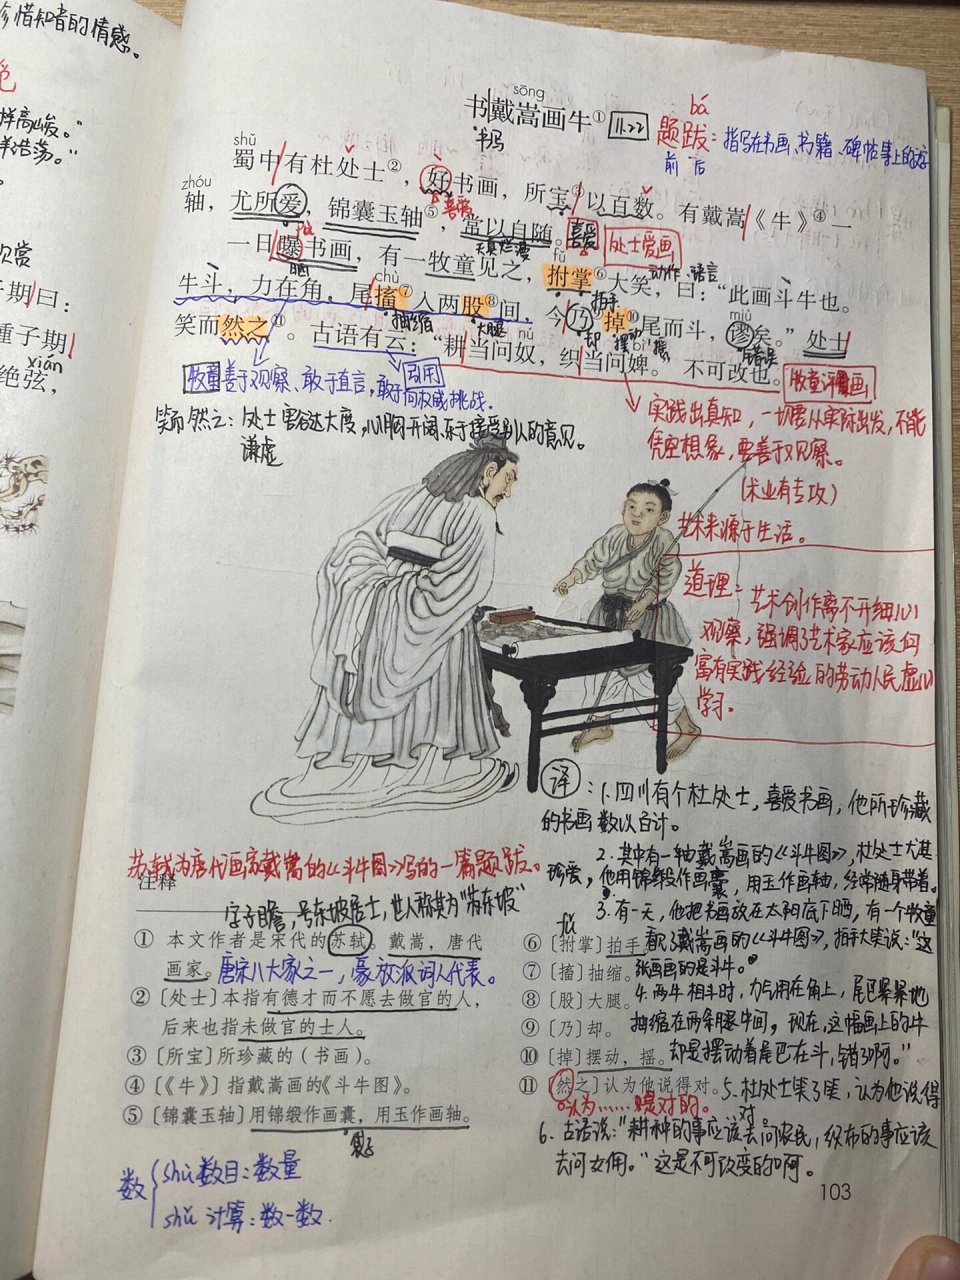 珍惜知音的情感。
样高峻。”
羊浩荡。”
欣赏
子期曰：
锺子期
xián
绝弦，
sōng
书戴嵩画牛①
11.22
书写
bá
题跋：指写在书画、书籍、碑帖等上的文字
前 后
shǔ
蜀中有杜处士②，好书画，所宝③以百数。有戴嵩《牛》④一
zhóu
轴，尤所爱，锦囊玉轴⑤，常以自随。
喜爱
喜爱
处士爱画
pù
天真烂漫
fǔ
一日曝书画，有一牧童见之，拊掌⑥大笑，曰：“此画斗牛也。
晒
拍手
动作、语言
chù
牛斗，力在角，尾搐⑦入两股⑧间，今乃⑨掉⑩尾而斗，谬矣。”处士
抽缩
大腿
却
摆动 摇
miù
错误
nú
bì
笑而然之⑪。古语有云：“耕当问奴，织当问婢。”不可改也。
牧童评画
牧童善于观察、敢于直言，敢于向权威挑战。
引用
笑而然之：处士豁达大度，心胸开阔，乐于接受别人的意见。
谦虚
实践出真知，一切要从实际出发，不能
凭空想象，要善于观察。
（术业有专攻）
艺术来源于生活。
道理：艺术创作离不开细心
观察，强调了艺术家应该向
富有实践经验的劳动人民虚心
学习。
译：1.四川有个杜处士，喜爱书画，他所珍藏
的书画数以百计。
2.其中有一轴戴嵩画的《斗牛图》，杜处士尤其
珍爱，他用锦缎作画囊，用玉作画轴，经常随身带着。
3.有一天，他把书画放在太阳底下晒，有一个牧童
看了戴嵩画的《斗牛图》，拍手大笑说：“这
张画画的是斗牛。
4.两牛相斗时，力气用在角上，尾巴紧紧地
抽缩在两条腿中间，现在，这幅画上的牛
却是摆动着尾巴在斗，错了啊。”
5.杜处士笑了笑，认为他说得
对
6.古话说：“耕种的事应该去问农民，织布的事应该
去问女佣。”这是不可改变的啊。
苏轼为唐代画家戴嵩的《斗牛图》写的一篇题跋。
注释
字子瞻，号东坡居士，世人称其为“苏东坡”
① 本文作者是宋代的苏轼。戴嵩，唐代
画家。
唐宋八大家之一，豪放派词人代表。
② 〔处士〕本指有德才而不愿去做官的人，
后来也指未做官的士人。
③ 〔所宝〕所珍藏的（书画）。
④ 〔《牛》〕指戴嵩画的《斗牛图》。
⑤ 〔锦囊玉轴〕用锦缎作画囊，用玉作画轴。
袋子
fǔ
⑥ 〔拊掌〕拍手。
⑦ 〔搐〕抽缩。
⑧ 〔股〕大腿。
⑨ 〔乃〕却。
⑩ 〔掉〕摆动，摇。
⑪ 〔然之〕认为他说得对。
认为……是对的。
数
shù 数目：数量
shǔ 计算：数一数.
103